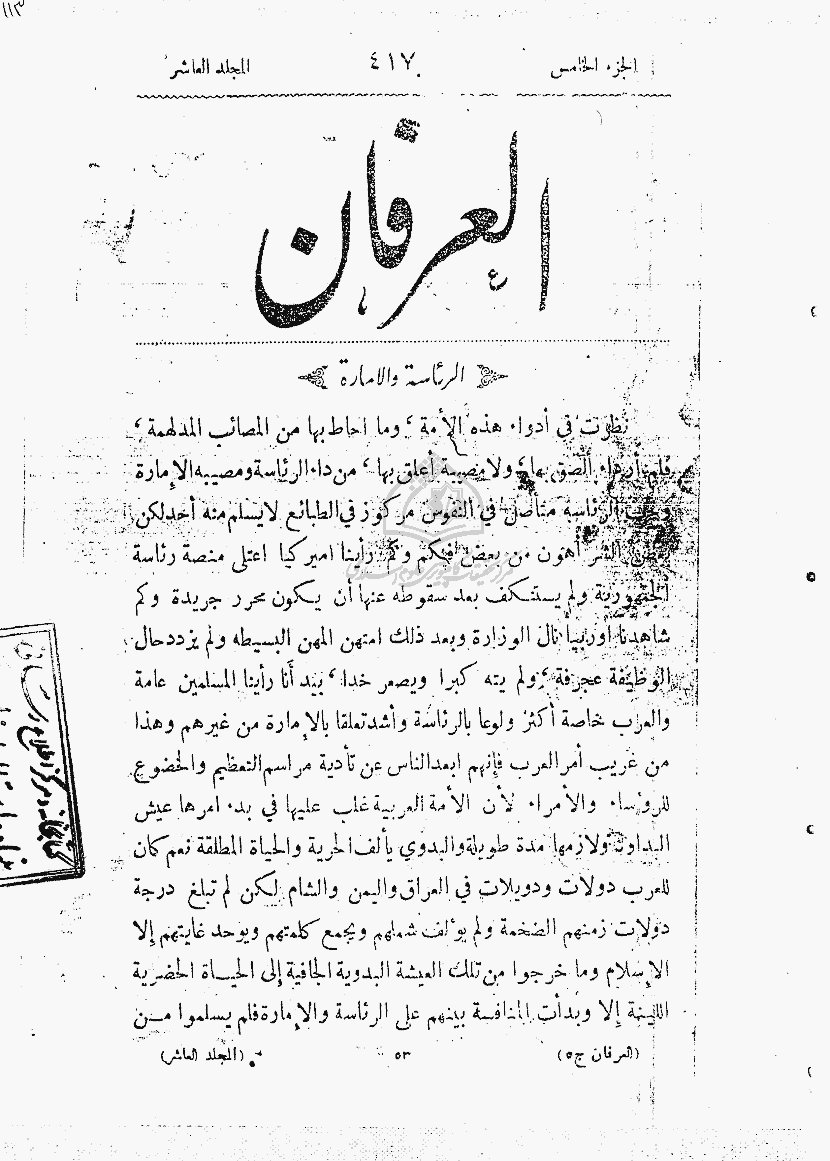 ١١٣
الجزء الخامس ٤١٧ المجلد العاشر
العرفان
الرئاسة والامارة
نظرت في أدواء هذه الأمة ، وما احاط بها من المصائب المدلهمة ،
فلم أر داء ألصق بها ، ولا مصيبة أعلق بها ، من داء الرئاسة ومصيبه الإمارة
وحب الرئاسة متأصل في النفوس مركوز في الطبائع لا يسلم منه أحد لكن
بعض الشر أهون من بعض فكم وكم رأينا اميركيا اعتلى منصة رئاسة
الجمهورية ولم يستنكف بعد سقوطه عنها أن يكون محرر جريدة وكم
شاهدنا اوربيا نال الوزارة وبعد ذلك امتهن المهن البسيطه ولم يزدد حال
الوظيفة عجرفة ، ولم يته كبرا ويصعر خدا ، بيد أنا رأينا المسلمين عامة
والعرب خاصة أكثر ولوعا بالرئاسة وأشد تعلقا بالإمارة من غيرهم وهذا
من غريب أمر العرب فإنهم ابعد الناس عن تأدية مراسم التعظيم والخضوع
للرؤساء والأمراء لأن الأمة العربية غلب عليها في بدء امرها عيش
البداوة ولازمها مدة طويلة والبدوي يألف الحرية والحياة المطلقة نعم كان
للعرب دولات ودويلات في العراق واليمن والشام لكن لم تبلغ درجة
دولات زمنهم الضخمة ولم يؤلف شملهم ويجمع كلمتهم ويوحد غايتهم إلا
الإسلام وما خرجوا من تلك العيشة البدوية الجافية إلى الحياة الحضرية
اللينة إلا وبدأت المنافسة بينهم على الرئاسة والإمارة فلم يسلموا من
(العرفان ج٥) ٥٣ (المجلد العاشر)